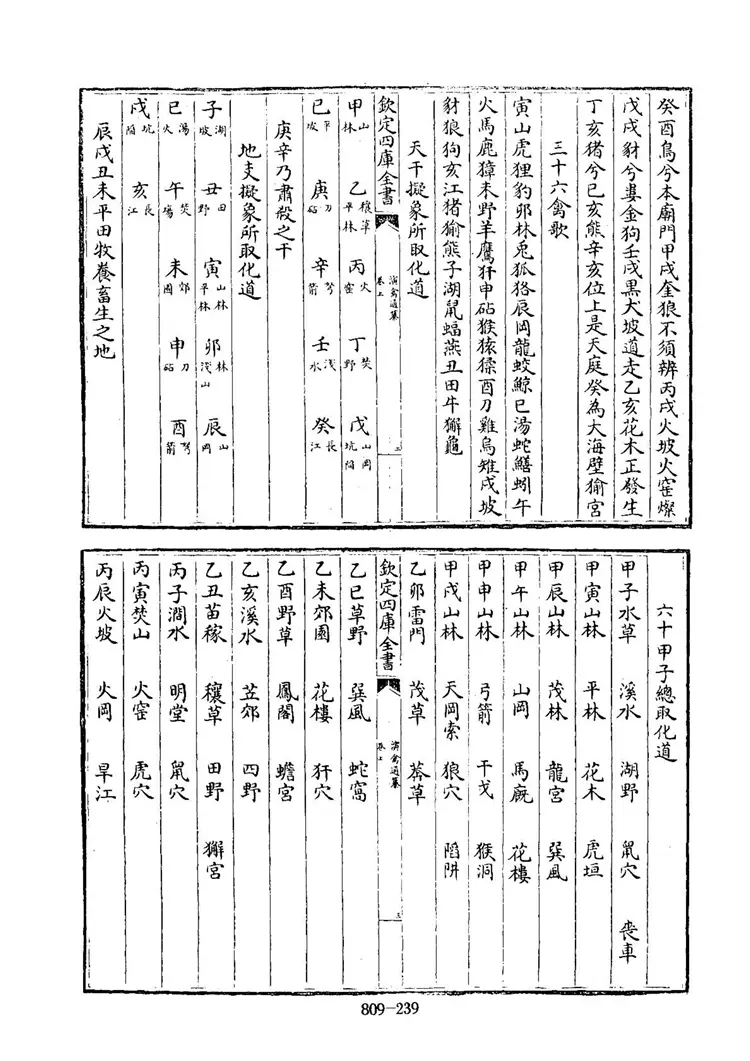 癸酉鳥兮本廟門甲戌奎狼不須辨丙戌火坡火窑燦
戊戌豺兮婁金狗壬戌黑犬坡道走乙亥花木正發生
丁亥猪兮已亥熊辛亥位上是天庭癸為大海壁㺄宮
三十六禽歌
寅山虎狸豹卯林兎狐狢辰岡龍蛟鯨巳湯蛇鱔蚓午
火馬鹿獐未野羊鷹犴申砧猴猿猱酉刀雞烏雉戌坡
豺狼狗亥江猪㺄熊子湖鼠蝠燕丑田牛獬龜
天干擬象所取化道
欽定四庫全書
演禽通纂
卷上
三
甲山林 乙穰草平林 丙火窑 丁焚野 戊山岡坑陷
已平坡 庚刀砧 辛弩箭 壬淺水 癸長江
庚辛乃肅殺之干
地支擬象所取化道
子湖坡 丑田野 寅山林平林 卯林淺山 辰山岡
巳湯火 午焚塲 未郊園 申刀砧 酉弩箭
戌坑陷 亥長江
辰戌丑未平田牧養畜生之地
六十甲子總取化道
甲子水草 溪水 湖野 鼠穴 喪車
甲寅山林 平林 花木 虎垣
甲辰山林 茂林 龍宮 巽風
甲午山林 山岡 馬廐 花樓
甲申山林 弓箭 干戈 猴洞
甲戌山林 天岡索 狼穴 陷阱
乙卯雷門 茂草 莽草
欽定四庫全書
演禽通纂
卷上
三
乙巳草野 巽風 蛇窩
乙未郊園 花樓 犴穴
乙酉野草 鳳閣 蟾宮
乙亥溪水 苙郊 四野
乙丑苗稼 穰草 田野 獬宮
丙子澗水 明堂 鼠穴
丙寅焚山 火窑 虎穴
丙辰火坡 火岡 旱江
809-239